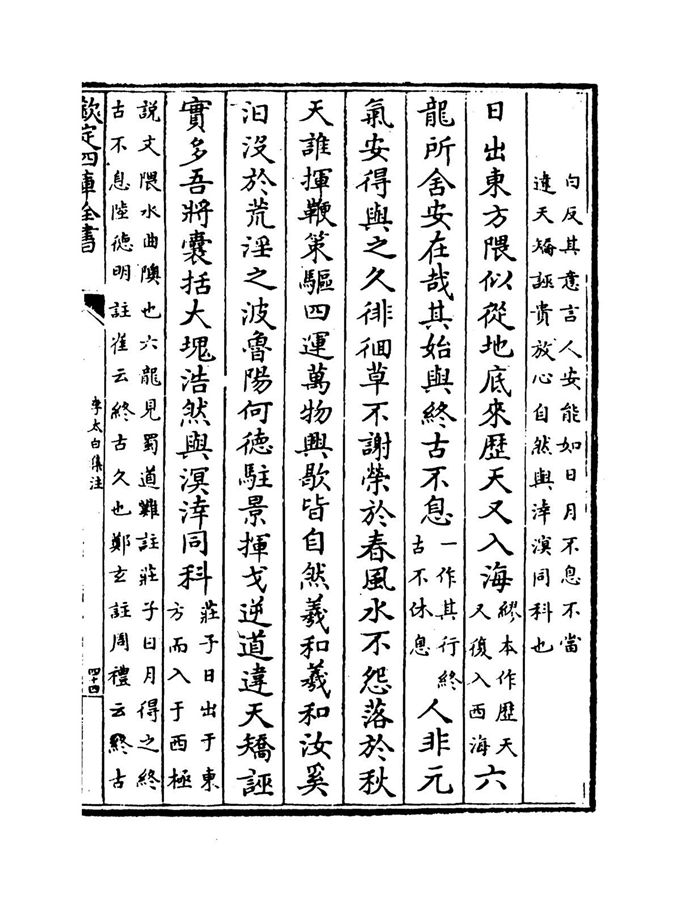 白反其意言人安能如日月不息不當
違天矯誣貴放心自然與涬溟同科也
日出東方隈似從地底來歴天又入海繆本作歴天
又復入西海六
龍所舍安在哉其始與終古不息一作其行終
古不休息人非元
氣安得與之久徘徊草不謝榮於春風水不怨落於秋
天誰揮鞭策驅四運萬物興歇皆自然羲和羲和汝奚
汩沒於荒淫之波魯陽何德駐景揮戈逆道違天矯誣
實多吾將囊括大塊浩然與溟涬同科莊子日出于東
方而入于西極
説文隈水曲隩也六龍見蜀道難註莊子日月得之終
古不息陸德明註崔云終古久也鄭玄註周禮云終古
欽定四庫全書
李太白集注
四十四